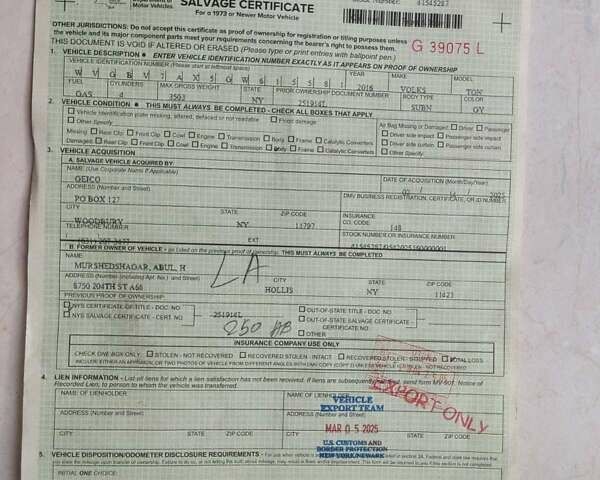 of Motor Vehicles
SALVAGE CERTIFICATE
For a 1973 or Newer Motor Vehicle
41545287
OTHER JURISDICTIONS: Do not accept this certificate as proof of ownership for registration or titling purposes unless
the vehicle and its major component parts meet your requirements concerning the bearer's right to possess them.
THIS DOCUMENT IS VOID IF ALTERED OR ERASED (Please type or print entries with ballpoint pen.)
G 39075 L
1. VEHICLE DESCRIPTION ENTER VEHICLE IDENTIFICATION NUMBER EXACTLY AS IT APPEARS ON PROOF OF OWNERSHIP
VEHICLE IDENTIFICATION NUMBER (Please start at leftmost space) YEAR MAKE MODEL
2016 VOLKS
FUEL CYLINDERS MAX GROSS WEIGHT STATE PRIOR OWNERSHIP DOCUMENT NUMBER BODY TYPE COLOR
GAS 4 3503 NY 251914L SUBN GY
2. VEHICLE CONDITION THIS MUST ALWAYS BE COMPLETED - CHECK ALL BOXES THAT APPLY
Vehicle identification plate missing, altered, defaced or not readable Flood damage
Other Specify
Air Bag Missing or Damaged: Driver Passenger
Missing: Rear Clip Front Clip Cowl Engine Transmission Body Frame Catalytic Converters
Driver side impact Passenger side impact
Damaged: Rear Clip Front Clip Cowl Engine Transmission Body Frame Catalytic Converters
Driver side curtain Passenger side curtain
Other
3. VEHICLE ACQUISITION
A. SALVAGE VEHICLE ACQUIRED BY:
NAME (Use Corporate Name if Applicable) DATE OF ACQUISITION (Month/Day/Year)
GEICO 02 14 2025
ADDRESS (Number and Street) DMV BUSINESS REGISTRATION, CERTIFICATE, OR ID NUMBER
PO BOX 127
CITY STATE ZIP CODE INSURANCE CO. CODE
WOODBURY NY 11797 148
TELEPHONE NUMBER EXT STOCK NUMBER OR INSURANCE NUMBER
B. FORMER OWNER OF VEHICLE - as listed on the previous proof of ownership. THIS MUST ALWAYS BE COMPLETED
NAME:
MURSHEDSHAGAR, ABUL, H
LA
ADDRESS (Number including Apt. No.) and Street) CITY STATE ZIP CODE
8750 204TH ST A66 HOLLIS NY 11423
PREVIOUS PROOF OF OWNERSHIP:
NYS CERTIFICATE OF TITLE - DOC. NO. OUT-OF-STATE TITLE - DOC. NO.
NY SALVAGE CERTIFICATE - CERT. NO. 251914L OUT-OF-STATE SALVAGE CERTIFICATE - CERTIFICATE NO.
250 AB
OTHER
INSURANCE COMPANY USE ONLY
CHECK ONE BOX ONLY: STOLEN - NOT RECOVERED RECOVERED STOLEN - INTACT RECOVERED STOLEN - STRIPPED TOTAL LOSS
EXPORT ONLY
4. LIEN INFORMATION - List all liens for which a lien satisfaction has not been received. If liens are subsequently satisfied, send form MV-901, Notice of
Recorded Lien, to person to whom the vehicle was transferred.
NAME OF LIENHOLDER NAME OF LIENHOLDER
ADDRESS (Number and Street) ADDRESS (Number and Street)
CITY STATE ZIP CODE CITY STATE ZIP CODE
VEHICLE
EXPORT TEAM
MAR 0 5 2025
U.S. CUSTOMS AND
BORDER PROTECTION
NEW YORK/NEWARK
5. VEHICLE DISPOSITION/ODOMETER DISCLOSURE REQUIREMENTS
INITIAL ONE CHOICE: